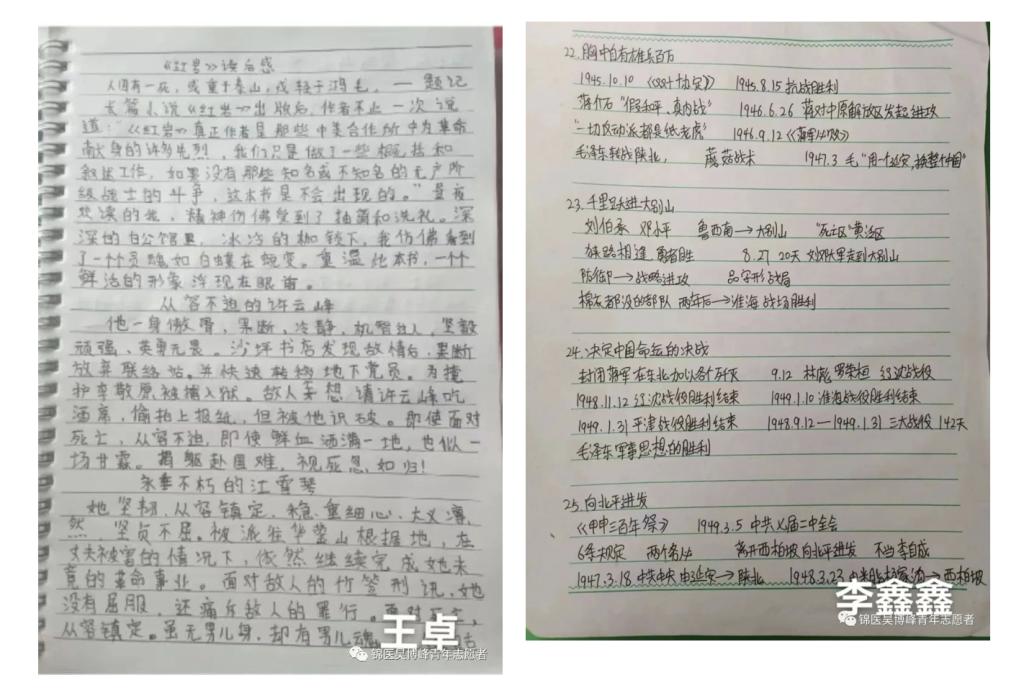 《红岩》读后感
人固有一死，或重于泰山，或轻于鸿毛。——题记
长篇小说《红岩》出版后，作者不止一次说
道：“《红岩》真正作者是那些中美合作所中为革命
献身的许多先烈，我们只是做了一些概括和
叙述工作，如果没有那些知名或不知名的无产阶
级战士的斗争，这本书是不会出现的。”昼夜
欢读的我，精神仿佛受到了抽茧和洗礼。深
深的白公馆里，冰冷的枷锁下，我仿佛看到
了一个灵魂如白蝶在蜕变。重温此本书，一个个
鲜活的形象浮现在眼前。
从容不迫的许云峰
他一身傲骨，果断，冷静，机智过人，坚毅
顽强、英勇无畏。沙坪书店发现敌情后，果断
放弃联络站。并快速转移地下党员。为掩
护李敬原被捕入狱。敌人妄想请许云峰吃
酒席，偷拍上报纸，但被他识破。即使面对
死亡，从容不迫，即使鲜血洒满一地，也似一
场甘霖。捐躯赴国难，视死忽如归！
永垂不朽的江雪琴
她坚韧，从容镇定，细心、大义凛
然，坚贞不屈。被派往华蓥山根据地，在
丈夫被害的情况下，依然继续完成她未
竟的革命事业。面对敌人的竹签刑讯，她
没有屈服，还痛斥敌人的罪行。面对死亡，
从容镇定。虽无男儿身，却有男儿魂
王卓
锦医吴博峰青年志愿者
22.胸中自有雄兵百万
1945.10.10 《双十协定》 1945.8.15 抗战胜利
蒋介石“假和平、真内战” 1946.6.26 蒋对中原解放区发起进攻
“一切反动派都是纸老虎” 1946.9.12
毛泽东转战陕北， 蘑菇战术 1947.3 毛“用一个延安，换整个中国”
23.千里跃进大别山
刘伯承 邓小平 鲁西南→大别山 黄泛区
狭路相逢 勇者胜 8.27 20天 刘邓大军走到大别山
防御→战略进攻 品字形战局
棉衣都没的部队 两年后→淮海战场胜利
24.决定中国命运的决战
封闭蒋军在东北加以各个歼灭 9.12 林彪 罗荣桓 辽沈战役
1948.11.12 辽沈战役胜利结束 1949.1.10 淮海战役胜利结束
1949.1.31 平津战役胜利结束 1948.9.12—1949.1.31 三大战役 142天
毛泽东军事思想的胜利
25.向北平进发
《甲申三百年祭》 1949.3.5 中共七届二中全会
6条规定 两个务必 离开西柏坡向北平进发 不当李自成
1947.3.18 中共中央由延安→陕北 1948.3.23 →西柏坡
李鑫鑫
锦医吴博峰青年志愿者